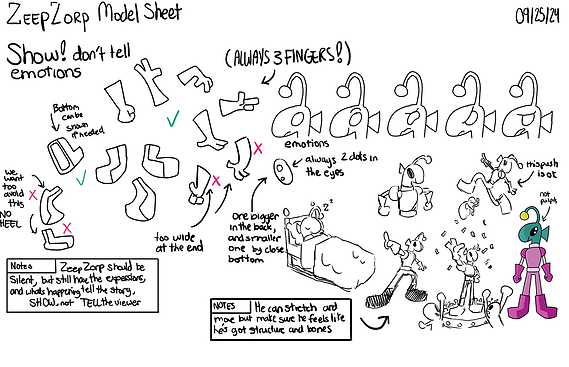 ZeepZorp Model Sheet
09/25/24
Show! don't tell
emotions
(ALWAYS 3 FINGERS!)
Bottom
can be
shown
if needed
emotions
always 2 dots in
the eyes
this push
is ok
we
want
too
avoid
this
NO
HEEL
too wide
at the end
one bigger
in the back,
and smaller
one by close
bottom
zz
Notes
ZeepZorp should be
Silent, but still have the expressions,
and whats happening tell the story,
SHOW, not TELL the viewer
NOTES
He can stretch and
move but make sure he feels like
he's got structure and bones